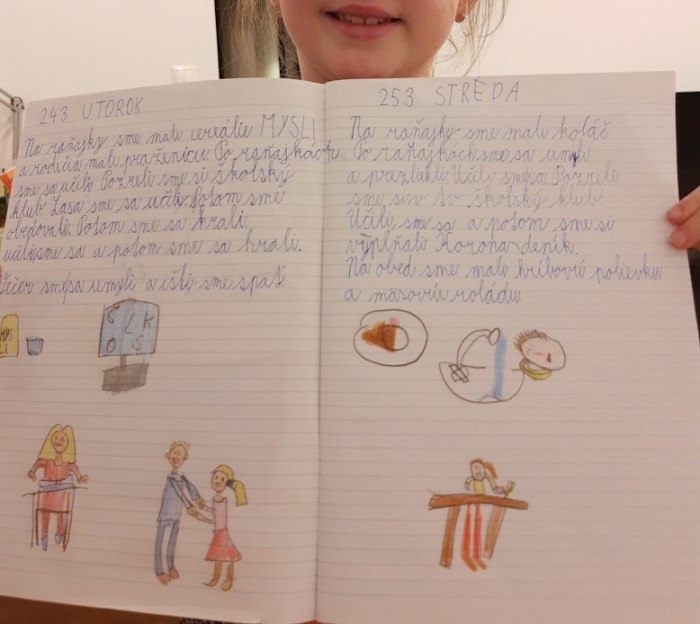 24.3 UTOROK
Na raňajky sme mali cereálie MYSLI
a rodičia mali praženicu. Po raňajkách
sme sa učili. Pozreli sme si školský
klub. Zasa sme sa učili. Potom sme
obedovali. Potom sme sa hrali,
učili sme sa a potom sme sa hrali.
Večer sme sa umyli a išli sme spať.
25.3 STREDA
Na raňajky sme mali koláč
Po raňajkách sme sa umyli
a prezliekli. Učili sme sa. Pozreli
sme si v tv školský klub.
Učili sme sa a potom sme si
vyplňali Korona denník.
Na obed sme mali hríbovú polievku
a mäsovú roládu.